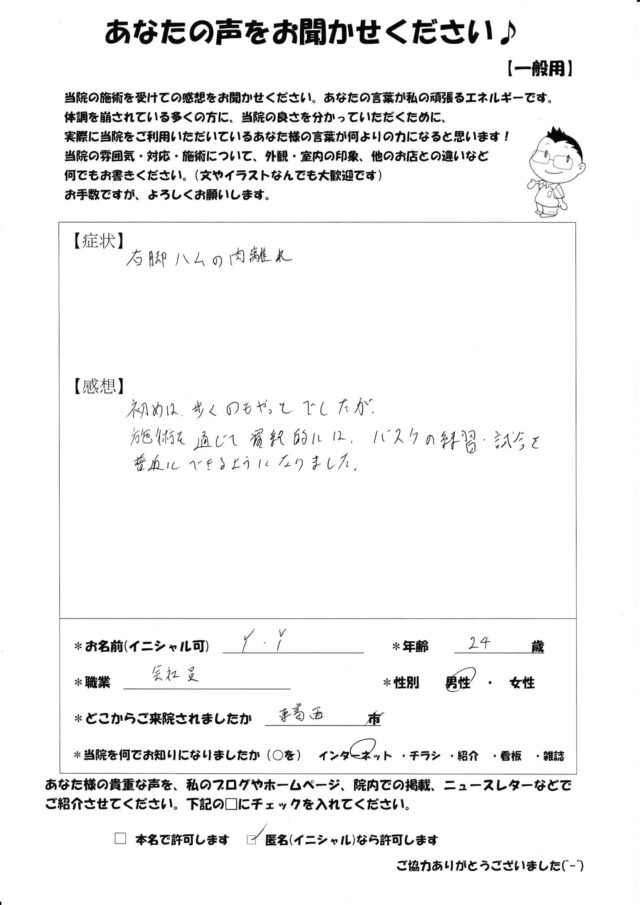 あなたの声をお聞かせください♪
【一般用】
当院の施術を受けての感想をお聞かせください。あなたの言葉が私の頑張るエネルギーです。
体調を崩されている多くの方に、当院の良さを分かっていただくために、
実際に当院をご利用いただいているあなた様の言葉が何よりの力になると思います！
当院の雰囲気・対応・施術について、外観・室内の印象、他のお店との違いなど
何でもお書きください。(文やイラストなんでも大歓迎です)
お手数ですが、よろしくお願いします。
【症状】
右脚ハムの肉離れ
【感想】
初めは、歩くのもやっとでしたが、
施術を通じて最終的には、バスケの練習・試合を
普通にできるようになりました。
＊お名前(イニシャル可) Y.Y ＊年齢 24 歳
＊職業 会社員 ＊性別 男性 ・ 女性
＊どこからご来院されましたか 東葛西 市
＊当院を何でお知りになりましたか (〇を) インターネット ・チラシ ・紹介 ・看板 ・雑誌
あなた様の貴重な声を、私のブログやホームページ、院内での掲載、ニュースレターなどで
ご紹介させてください。下記の□にチェックを入れてください。
□ 本名で許可します ☑ 匿名(イニシャル)なら許可します
ご協力ありがとうございました(^-^)